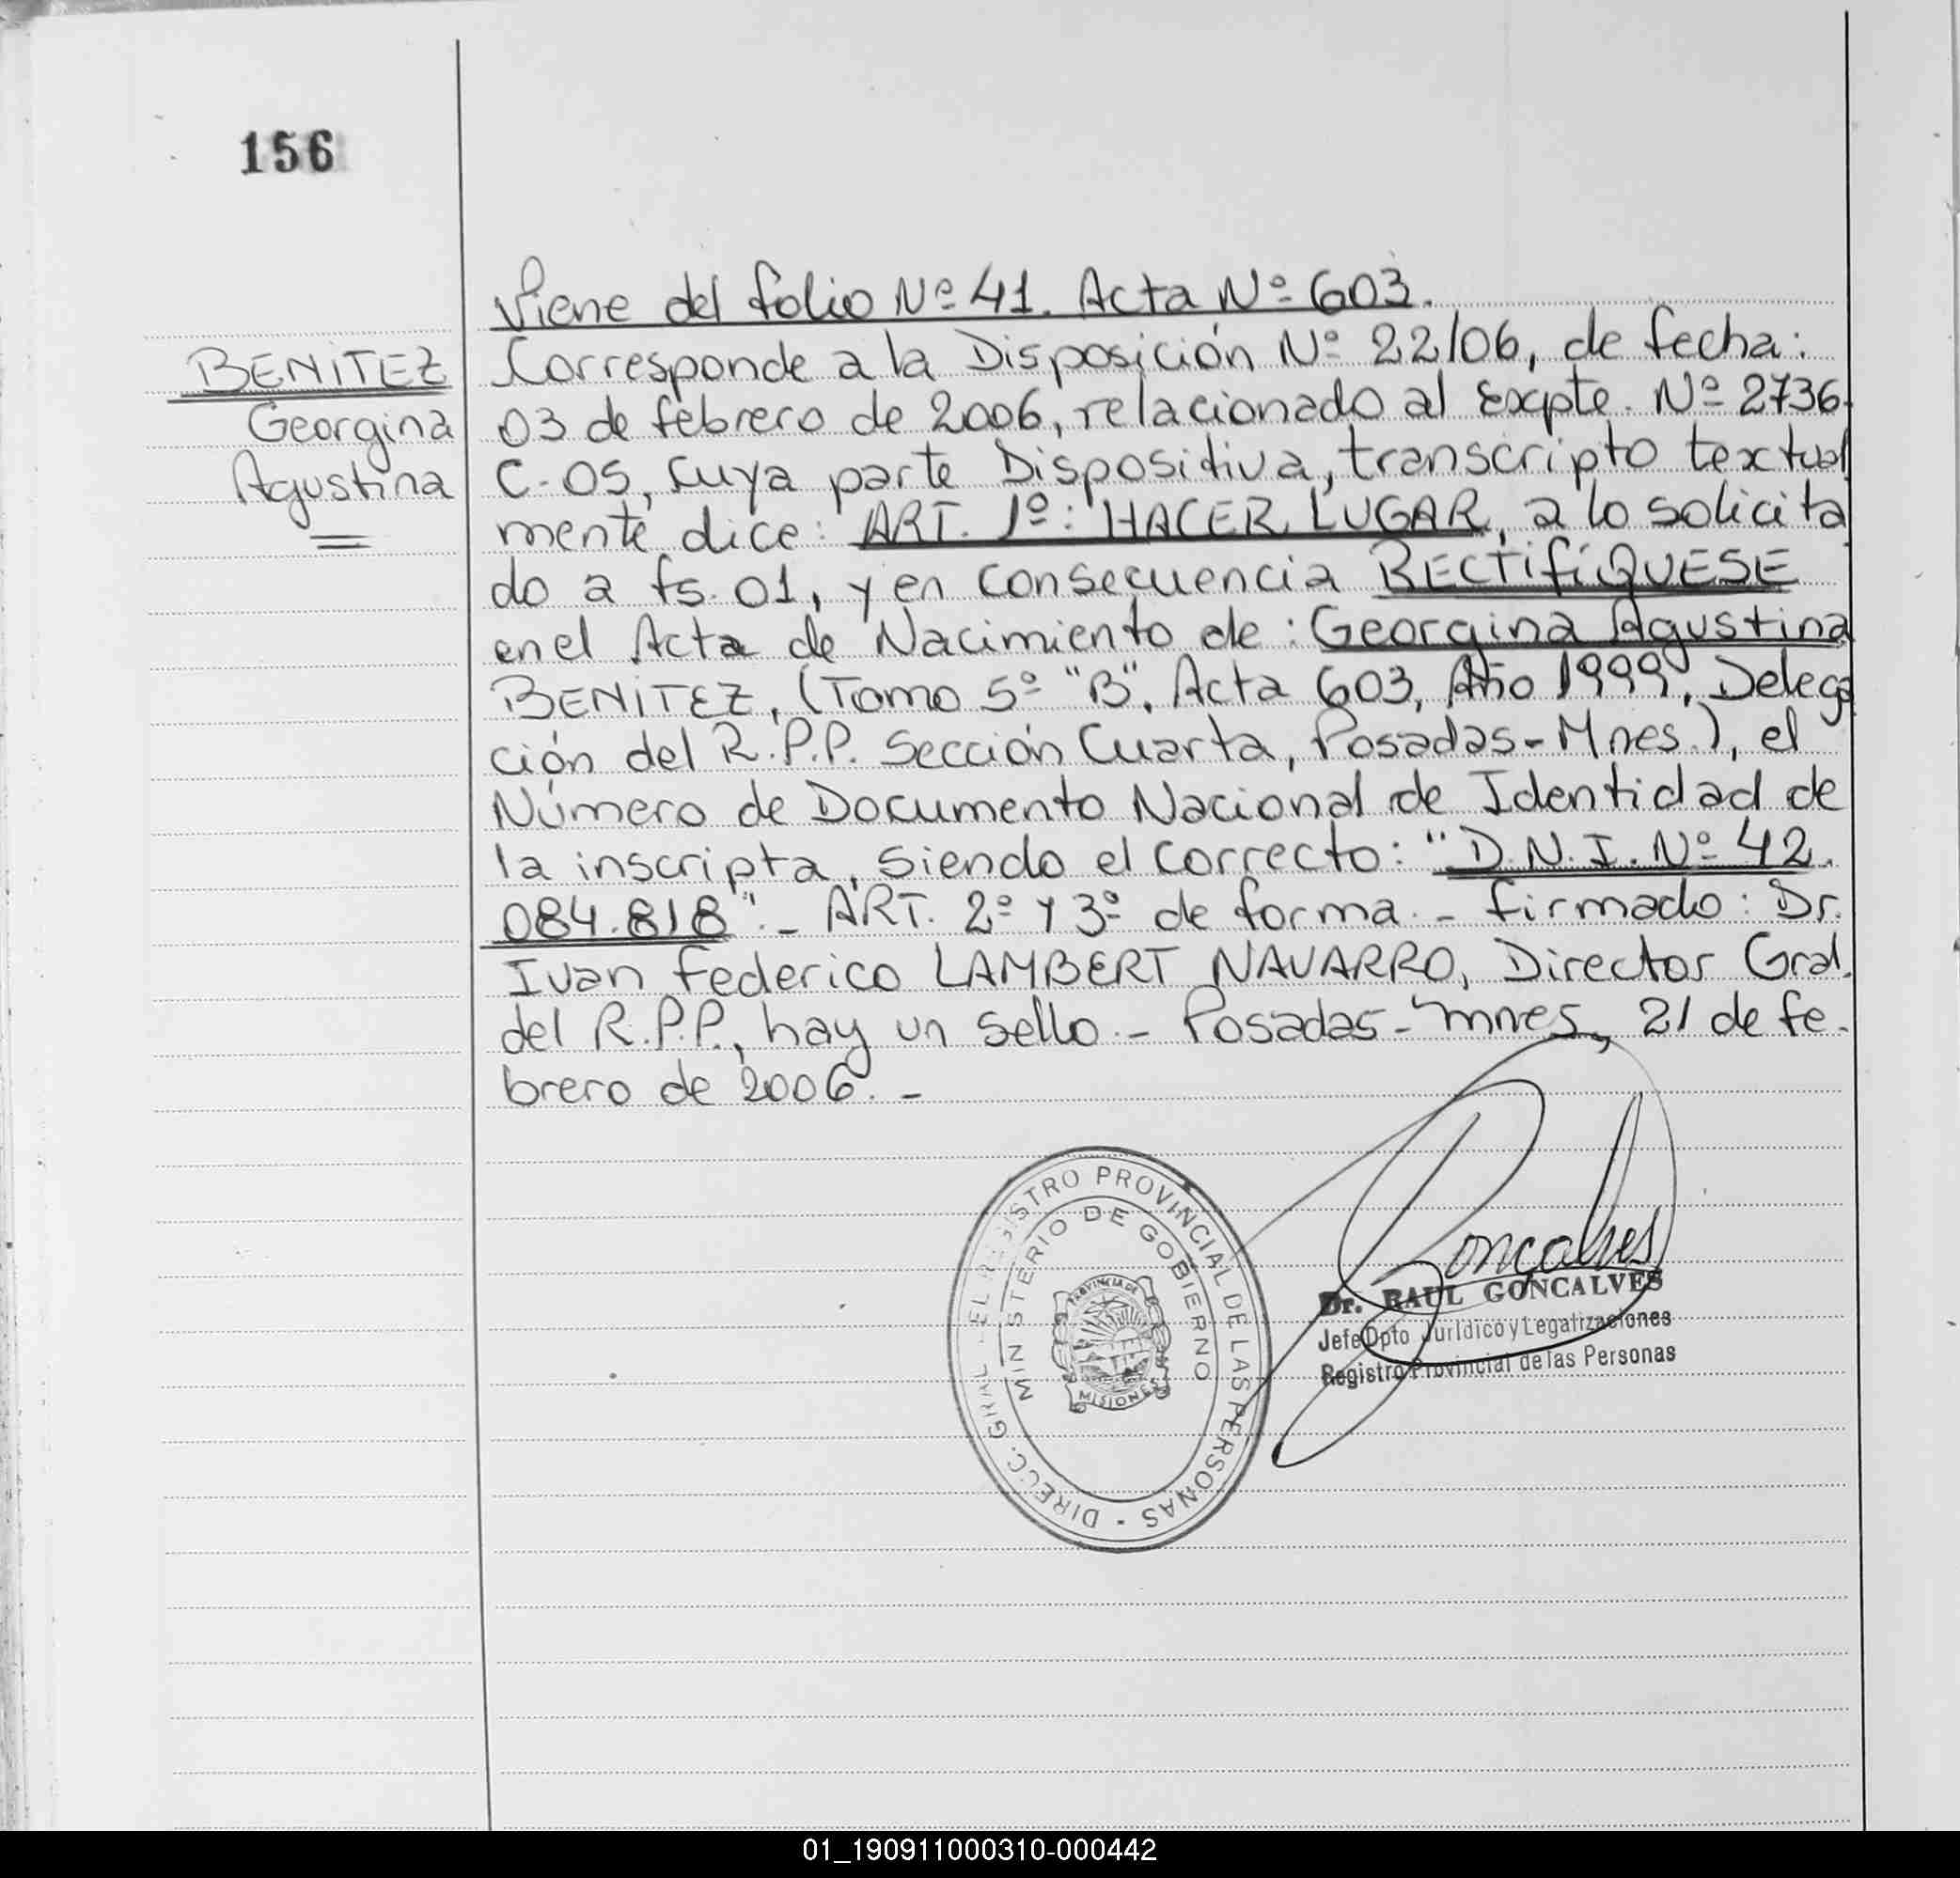 156
Viene del folio Nº 41. Acta Nº 603.
BENITEZ
Georgina
Agustina
Corresponde a la Disposición Nº 22/06, de fecha:
03 de febrero de 2006, relacionado al Expte. Nº 2736-
C-05, cuya parte Dispositiva, transcripto textual
mente dice: "ART. 1º: HACER LUGAR, a lo solicita
do a fs. 01, y en consecuencia RECTIFÍQUESE
en el Acta de Nacimiento de: Georgina Agustina
BENITEZ, (Tomo 5º "B", Acta 603, Año 1999, Delega
ción del R.P.P. Sección Cuarta, Posadas-Mnes.), el
Número de Documento Nacional de Identidad de
la inscripta, siendo el correcto: "D.N.I. Nº 42.
084.818".- ART. 2º y 3º de forma.- firmado: Dr.
Ivan Federico LAMBERT NAVARRO, Director Gral.
del R.P.P., hay un sello.- Posadas-Mnes, 21 de fe-
brero de 2006.-
DIRECC. GRAL. DEL REGISTRO PROVINCIAL DE LAS PERSONAS -
MINISTERIO DE GOBIERNO
PROVINCIA DE
MISIONES
Goncalves
Dr. RAUL GONCALVES
Jefe Dpto Jurídico y Legalizaciones
Registro Provincial de las Personas
01_190911000310-000442